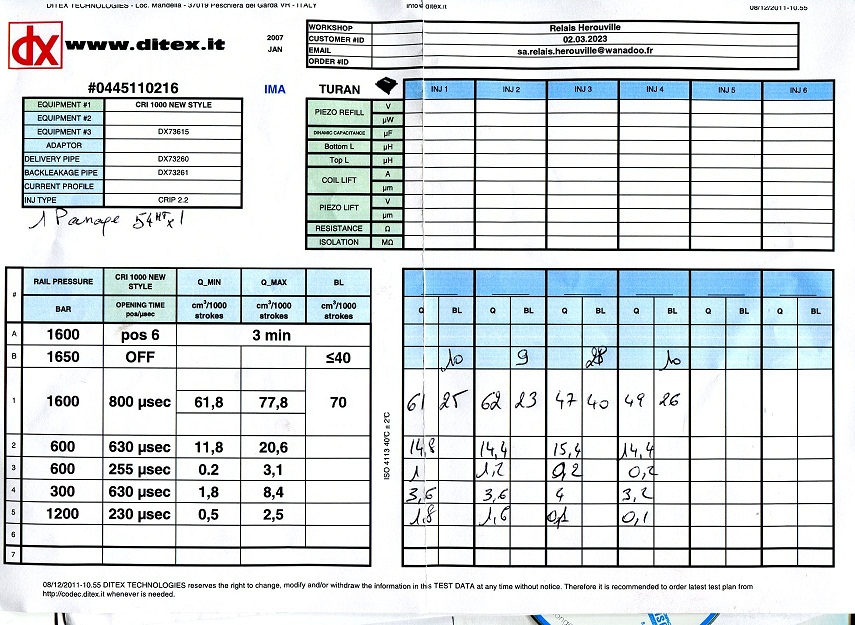 DITEX TECHNOLOGIES - Loc. Mandella - 37019 Peschiera del Garda VR - ITALY
info@ditex.it
08/12/2011-10.55
dx www.ditex.it
2007
JAN
WORKSHOP Relais Herouville
CUSTOMER #ID 02.03.2023
EMAIL sa.relais.herouville@wanadoo.fr
ORDER #ID
#0445110216 IMA TURAN
EQUIPMENT #1 CRI 1000 NEW STYLE
EQUIPMENT #2
EQUIPMENT #3 DX73615
ADAPTOR
DELIVERY PIPE DX73260
BACKLEAKAGE PIPE DX73261
CURRENT PROFILE
INJ TYPE CRIP 2.2
INJ 1 INJ 2 INJ 3 INJ 4 INJ 5 INJ 6
PIEZO REFILL V
µW
DINAMIC CAPACITANCE µF
Bottom L µH
Top L µH
COIL LIFT A
µm
PIEZO LIFT V
µm
RESISTANCE Ω
ISOLATION MΩ
1
# RAIL PRESSURE CRI 1000 NEW STYLE Q_MIN Q_MAX BL
BAR OPENING TIME pos/µsec cm³/1000 strokes cm³/1000 strokes cm³/1000 strokes
Q BL Q BL Q BL Q BL Q BL Q BL
A 1600 pos 6 3 min
B 1650 OFF ≤40 10 9 10
1 1600 800 µsec 61,8 77,8 70 61 25 62 23 47 40 49 26
2 600 630 µsec 11,8 20,6 14,8 14,4 15,4 14,4
3 600 255 µsec 0.2 3,1 1 1,2 0,2 0,2
4 300 630 µsec 1,8 8,4 3,6 3,6 4 3,2
5 1200 230 µsec 0,5 2,5 1,8 1,6 0,1 0,1
6
7
ISO 4113 40°C ± 2°C
08/12/2011-10.55 DITEX TECHNOLOGIES reserves the right to change, modify and/or withdraw the information in this TEST DATA at any time without notice. Therefore it is recommended to order latest test plan from
http://codec.ditex.it whenever is needed.